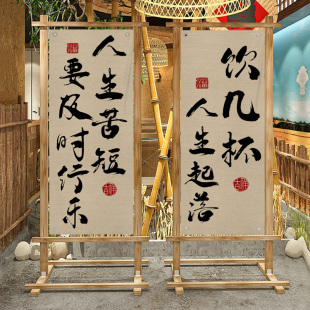 饮几杯
人生起落
人生苦短
要及时行乐